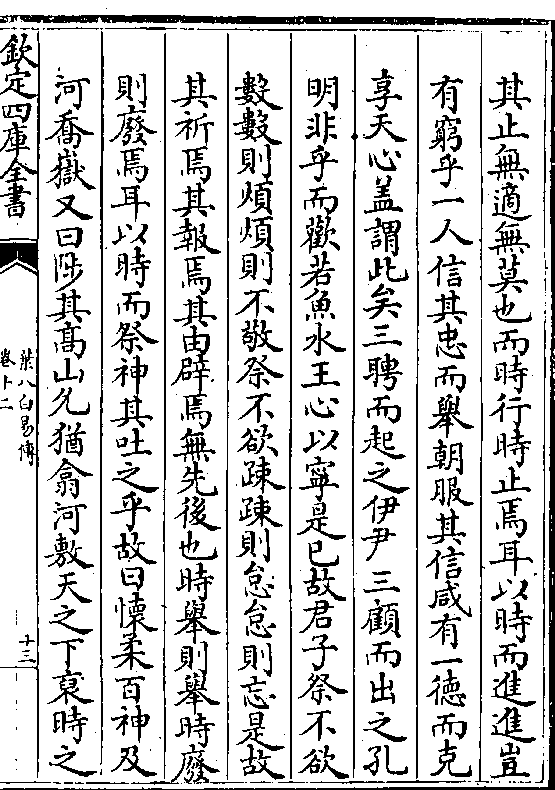 其止無適無莫也而時行時止焉耳以時而進進豈
有窮乎一人信其忠而舉朝服其信咸有一德而克
享天心盖謂此矣三聘而起之伊尹三顧而出之孔
明非乎而歡若魚水王心以寧是已故君子祭不欲
數數則煩煩則不敬祭不欲踈踈則怠怠則忘是故
其祈焉其報焉其由辟焉無先後也時舉則舉時廢
則廢焉耳以時而祭神其吐之乎故曰懐柔百神及
河喬嶽又曰陟其髙山允猶翕河敷天之下裒時之
欽定四庫全書
葉八白易傳
卷十二
十三